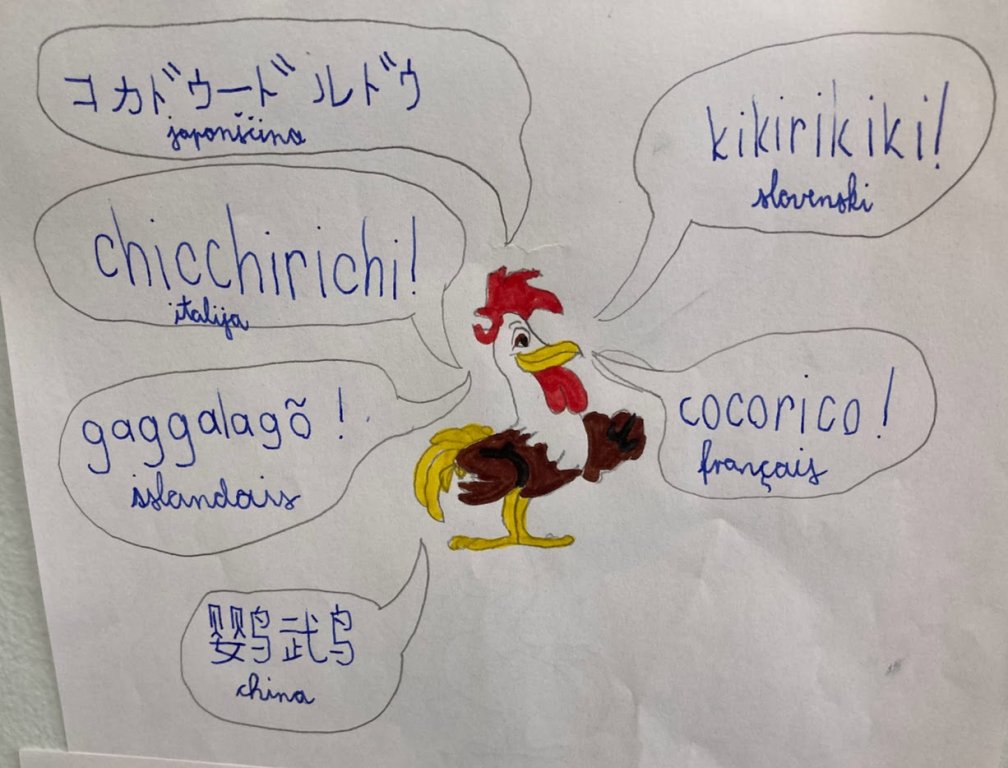 コカドゥードルドゥ
japonščina
kikirikiki!
slovenski
chicchirichi!
italija
gaggalagõ !
islandais
cocorico !
français
鹦鹉
china